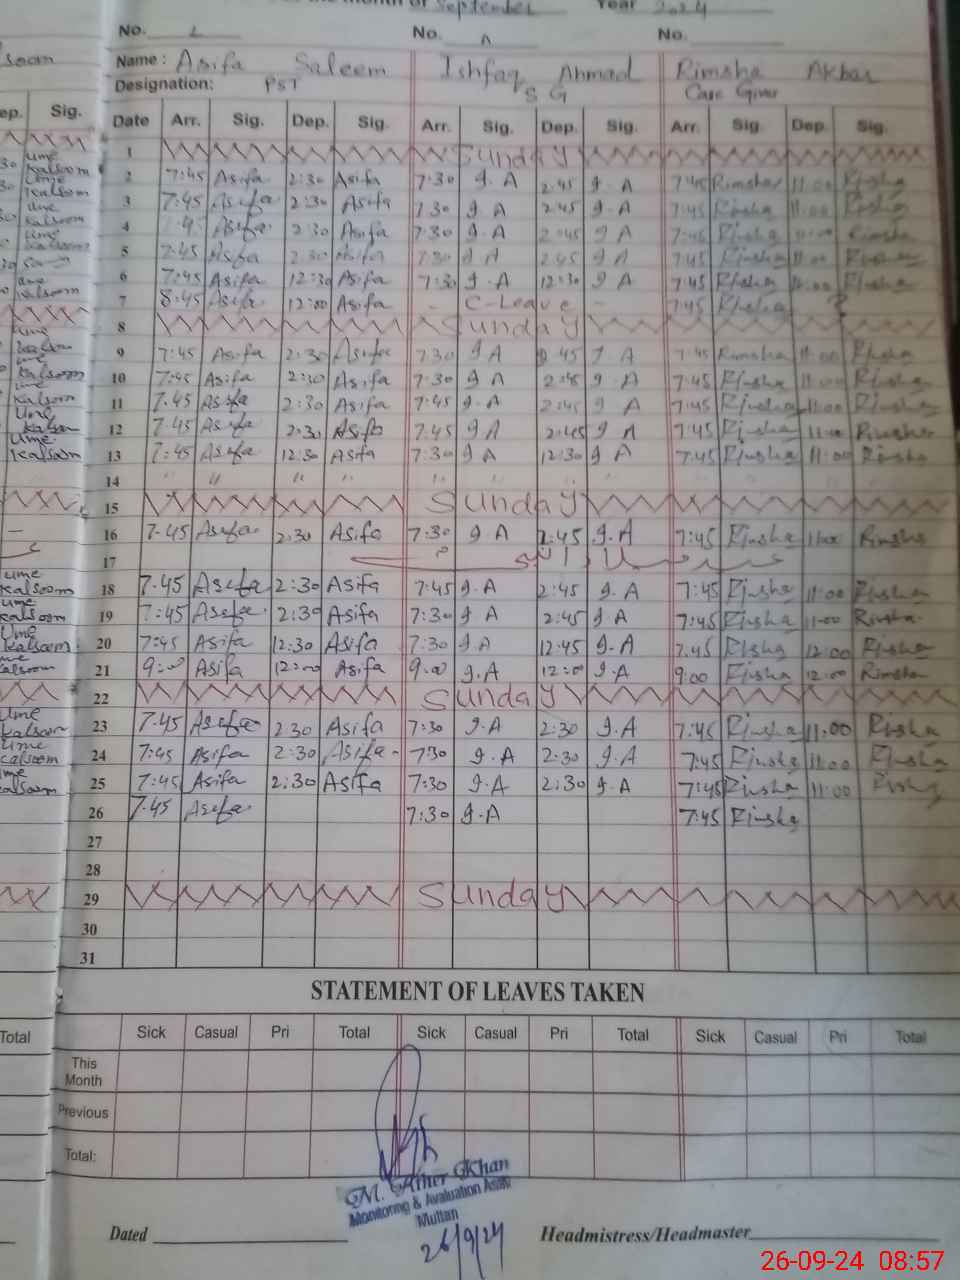 the month of September Year 2024
No. 2 No. No.
Name : Asifa Saleem Ishfaq Ahmad Rimsha Akbar
Designation: PST S G Care Giver
Date Arr. Sig. Dep. Sig. Arr. Sig. Dep. Sig. Arr. Sig. Dep. Sig.
1 Sunday
2 7:45 Asifa 2:30 Asifa 7:30 I.A 2:45 I.A 7:45 Rimsha 11:00 Rimsha
3 7:45 Asifa 2:30 Asifa 7:30 I.A 2:45 I.A 7:45 Rimsha 11:00 Rimsha
4 Asifa 2:30 Asifa 7:30 I.A 2:45 I A 7:45 Rimsha 11:00 Rimsha
5 7:45 Asifa 2:30 Asifa 7:30 I A 2:45 I A 7:45 Rimsha 11:00 Rimsha
6 7:45 Asifa 12:30 Asifa 7:30 I.A 12:30 I A 7:45 Rimsha 11:00 Rimsha
7 8:45 Asifa 12:00 Asifa - C-Leave - 7:45 Rimsha ?
8 Sunday
9 7:45 Asifa 2:30 Asifa 7:30 I A 2:45 I A 7:45 Rimsha 11:00 Rimsha
10 7:45 Asifa 2:30 Asifa 7:30 I A 2:45 I.A 7:45 Rimsha 11:00 Rimsha
11 7.45 Asifa 2:30 Asifa 7:45 I.A 2:45 I A 7:45 Rimsha 11:00 Rimsha
12 7.45 Asifa 2:30 Asifa 7.45 I A 2:45 I A 7:45 Rimsha 11:00 Rimsha
13 7:45 Asifa 12:30 Asifa 7:30 I A 12:30 I A 7:45 Rimsha 11:00 Rimsha
14 " " " " " " " " " "
15 Sunday
16 7.45 Asifa 2:30 Asifa 7:30 I.A 2:45 I.A 7:45 Rimsha 11:00 Rimsha
17 عید میلاد النبی
18 7.45 Asifa 2:30 Asifa 7:45 I.A 2:45 I.A 7:45 Rimsha 11:00 Rimsha
19 7:45 Asifa 2:30 Asifa 7:30 I.A 2:45 I.A 7:45 Rimsha 11:00 Rimsha
20 7:45 Asifa 12:30 Asifa 7:30 I A 12:45 I.A 7.45 Rimsha 12:00 Rimsha
21 9:00 Asifa 12:00 Asifa 9:00 I.A 12:00 I.A 9:00 Rimsha 12:00 Rimsha
22 Sunday
23 7.45 Asifa 2:30 Asifa 7:30 I.A 2:30 I.A 7:45 Rimsha 11:00 Rimsha
24 7:45 Asifa 2:30 Asifa 7:30 I.A 2:30 I.A 7:45 Rimsha 11:00 Rimsha
25 7:45 Asifa 2:30 Asifa 7:30 I.A 2:30 I.A 7:45 Rimsha 11:00 Rimsha
26 7.45 Asifa 7:30 I.A 7:45 Rimsha
27
28
29 Sunday
30
31
STATEMENT OF LEAVES TAKEN
Total Sick Casual Pri Total Sick Casual Pri Total Sick Casual Pri Total
This Month
Previous
Total:
M. Amer Khan
Monitoring & Evaluation Asstt
Multan
26/9/24
Dated Headmistress/Headmaster
26-09-24 08:57